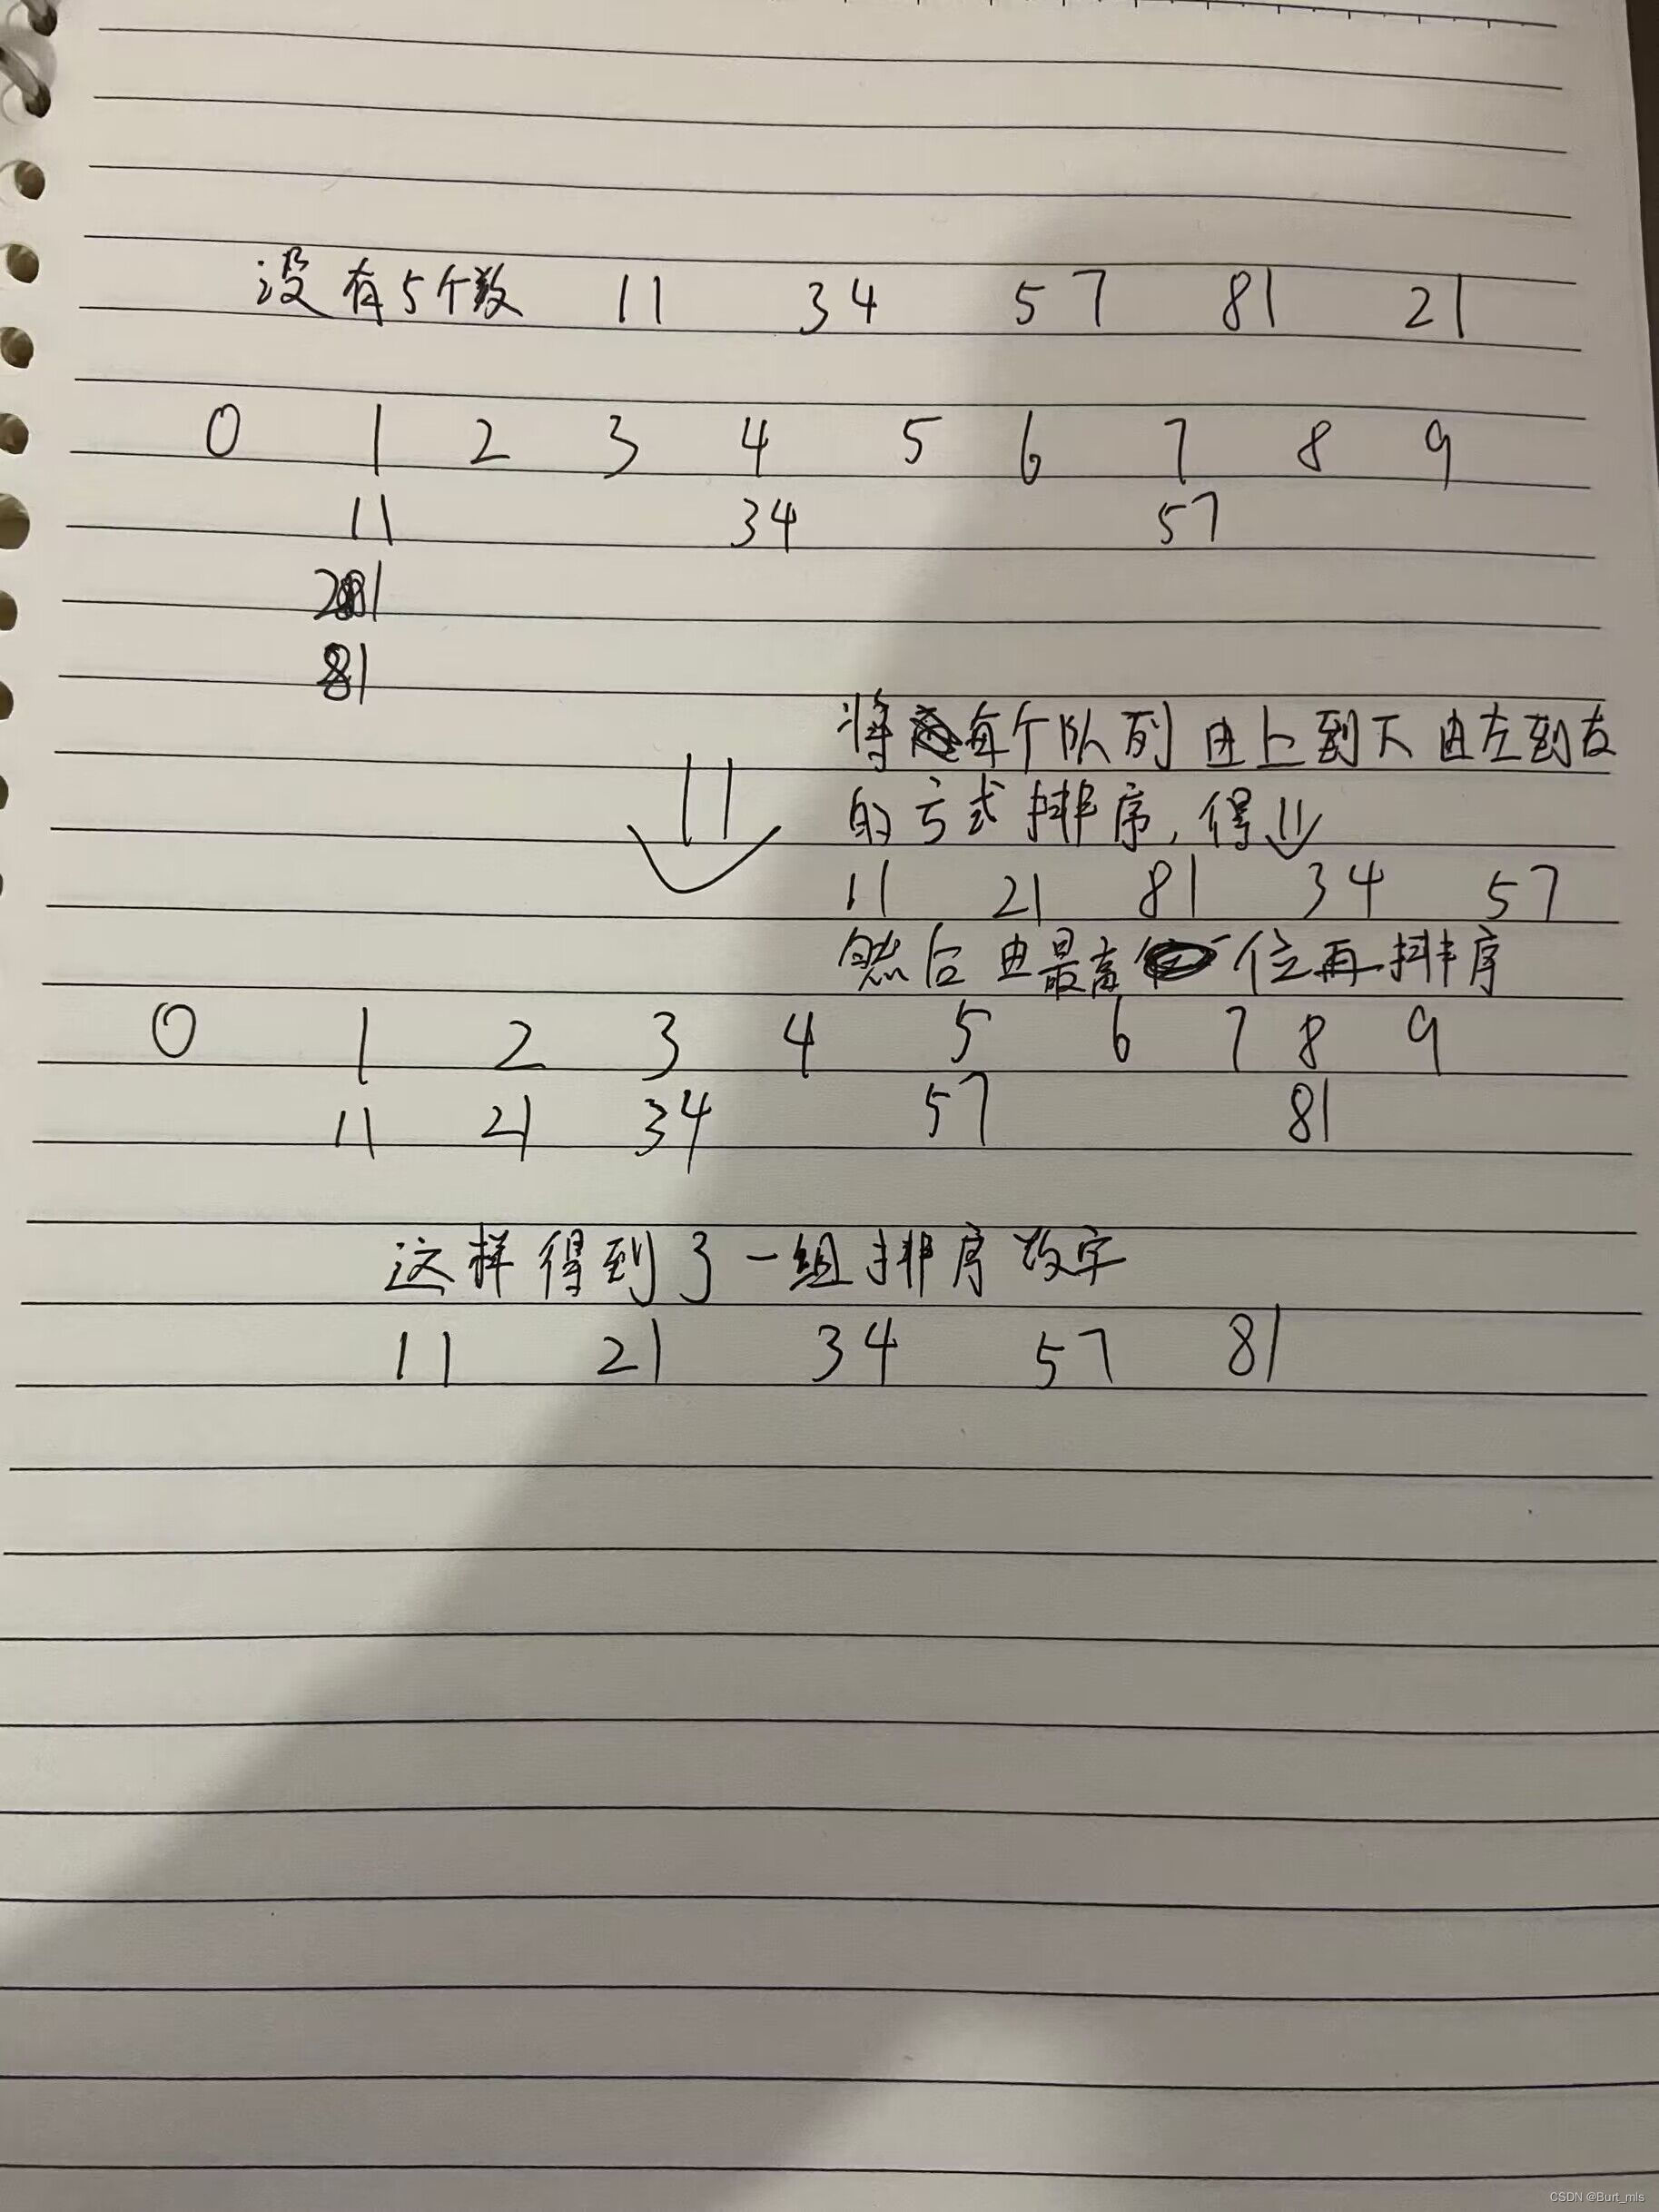 没有5个数 11 34 57 81 21
0 1 2 3 4 5 6 7 8 9
11 34 57
21
81
将每个队列由上到下由左到右
的方式排序,得⇓
11 21 81 34 57
然后由最高位再排序
0 1 2 3 4 5 6 7 8 9
11 21 34 57 81
这样得到了一组排序数字
11 21 34 57 81
CSDN @Burt_mls